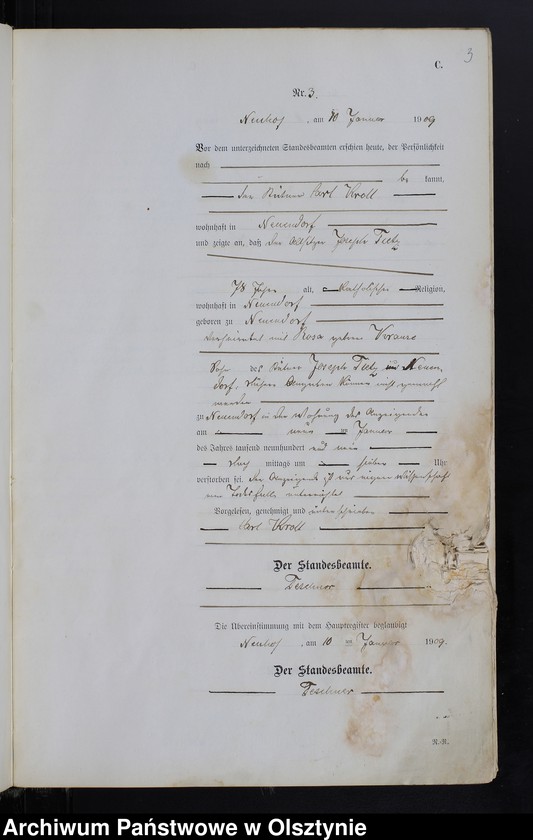 3
C.
Nr. 3.
Neuhof, am 10 Januar 1909
Vor dem unterzeichneten Standesbeamten erschien heute, der Persönlichkeit
nach
be kannt,
der Carl Kroll
wohnhaft in Neuendorf
und zeigte an, daß der Altsitzer Joseph Tietz
78 Jahre alt, katholischer Religion,
wohnhaft in Neuendorf
geboren zu Neuendorf
verheiratet mit Rosa geborne
Sohn des Joseph Tietz aus Neuen
dorf, Angaben können nicht gemacht
werden
zu Neuendorf in der Wohnung des Anzeigenden
am Januar
des Jahres tausend neunhundert und neun
Nach mittags um sieben Uhr
verstorben sei. Der Anzeigende ist aus eigener Wissenschaft
vom Todesfalle unterrichtet
Vorgelesen, genehmigt und unterschrieben
Carl Kroll
Der Standesbeamte.
Teschner
Die Übereinstimmung mit dem Hauptregister beglaubigt
Neuhof, am 10 ten Januar 1909.
Der Standesbeamte.
Teschner
N.-R.
Archiwum Państwowe w Olsztynie